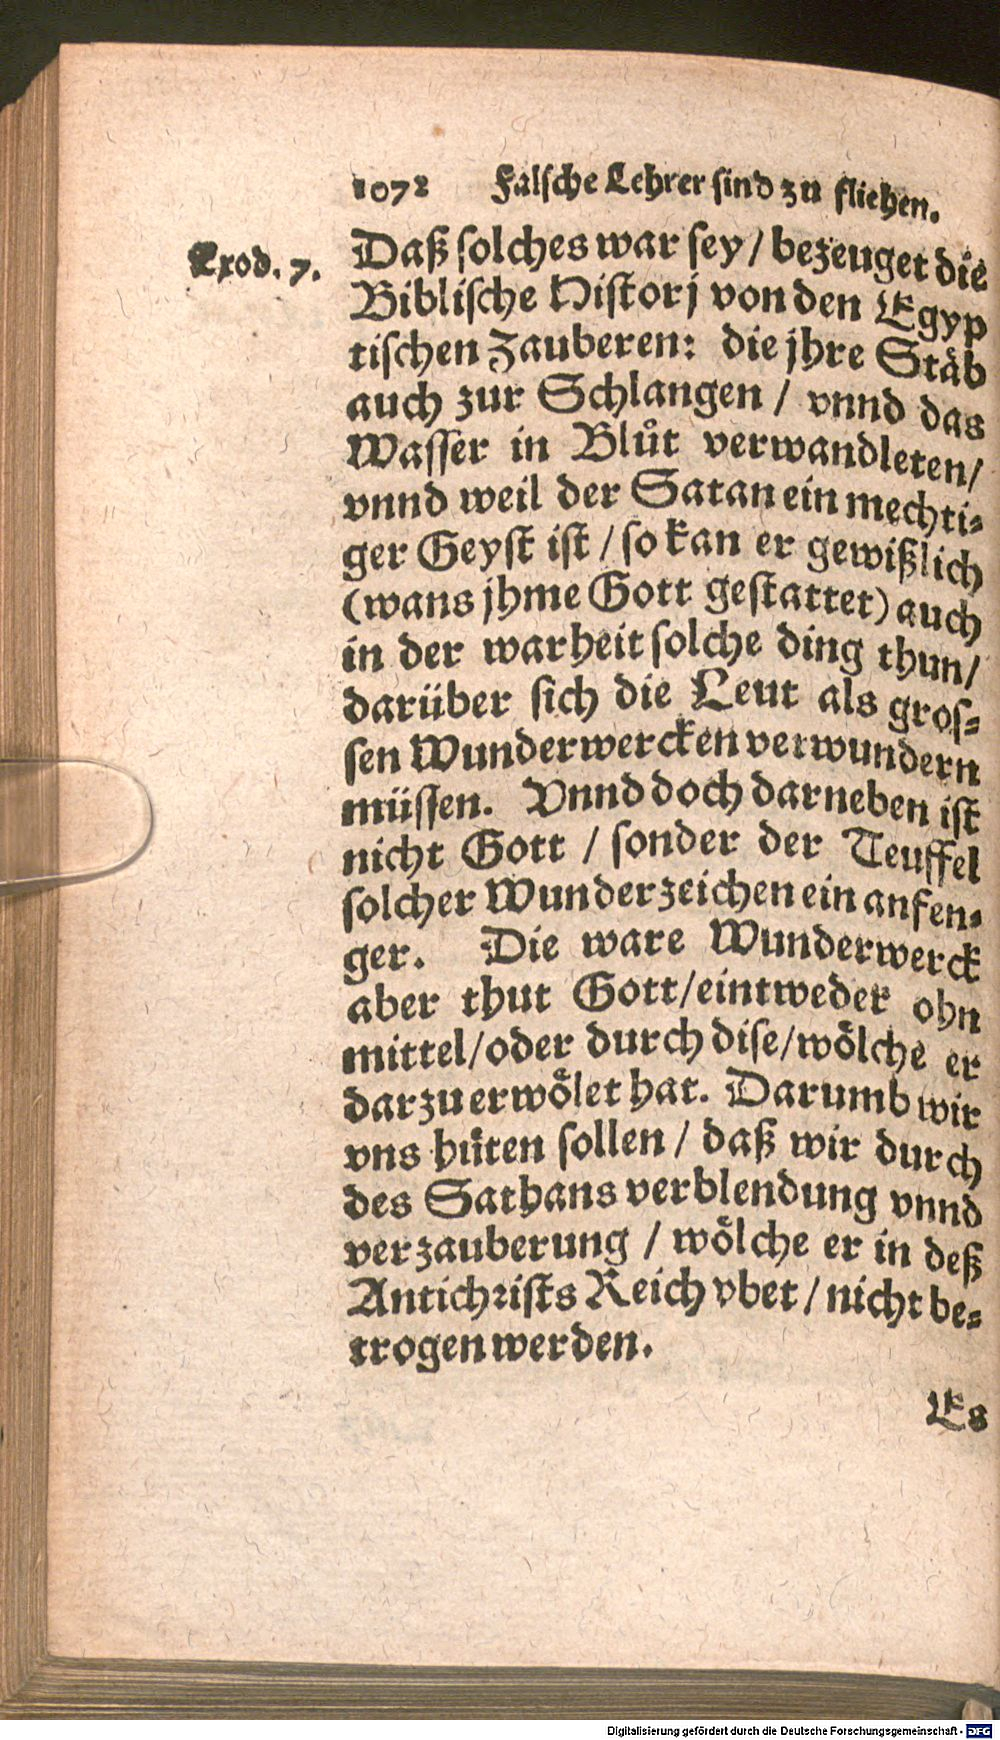 1072 Falsche Lehrer sind zu fliehen.
Exod. 7. Daß solches war sey / bezeuget die
Biblische Histori von den Egyp
tischen Zauberen: die jhre Stäb
auch zur Schlangen / vnnd das
Wasser in Blůt verwandleten /
vnnd weil der Satan ein mechti-
ger Geyst ist / so kan er gewißlich
(wans jhme Gott gestattet) auch
in der warheit solche ding thun /
darüber sich die Leut als gros-
sen Wunderwercken verwundern
müssen. Vnnd doch darneben ist
nicht Gott / sonder der Teuffel
solcher Wunderzeichen ein anfen-
ger. Die ware Wunderwerck
aber thut Gott / eintweder ohn
mittel / oder durch dise / wölche er
darzu erwölet hat. Darumb wir
vns hüten sollen / daß wir durch
des Sathans verblendung vnnd
verzauberung / wölche er in deß
Antichrists Reich vbet / nicht be-
trogen werden.
Es
Digitalisierung gefördert durch die Deutsche Forschungsgemeinschaft - DFG